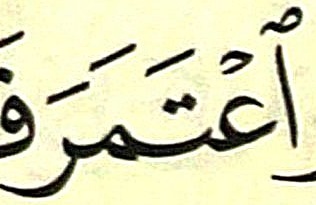 ٱعْتَمَرَ فَ